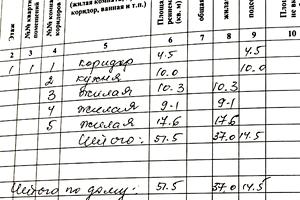 (жилая комната,
коридор, ванная и т.п.)
Этаж
2 3 4 5 6 7 8 9 10
1 1 1 коридор 4.5 4.5
2 кухня 10.0 10.0
3 жилая 10.3 10.3
4 жилая 9.1 9.1
5 жилая 17.6 17.6
Итого: 51.5 37.0 14.5
Итого по дому: 51.5 37.0 14.5